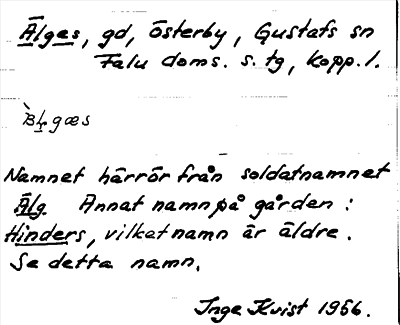 Älges, gd, Österby, Gustafs sn
Falu doms. s. tg, kopp. l.
Namnet härrör från soldatnamnet
Älg. Annat namn på gården:
Hinders, vilket namn är äldre.
Se detta namn.
Inge Kvist 1956.